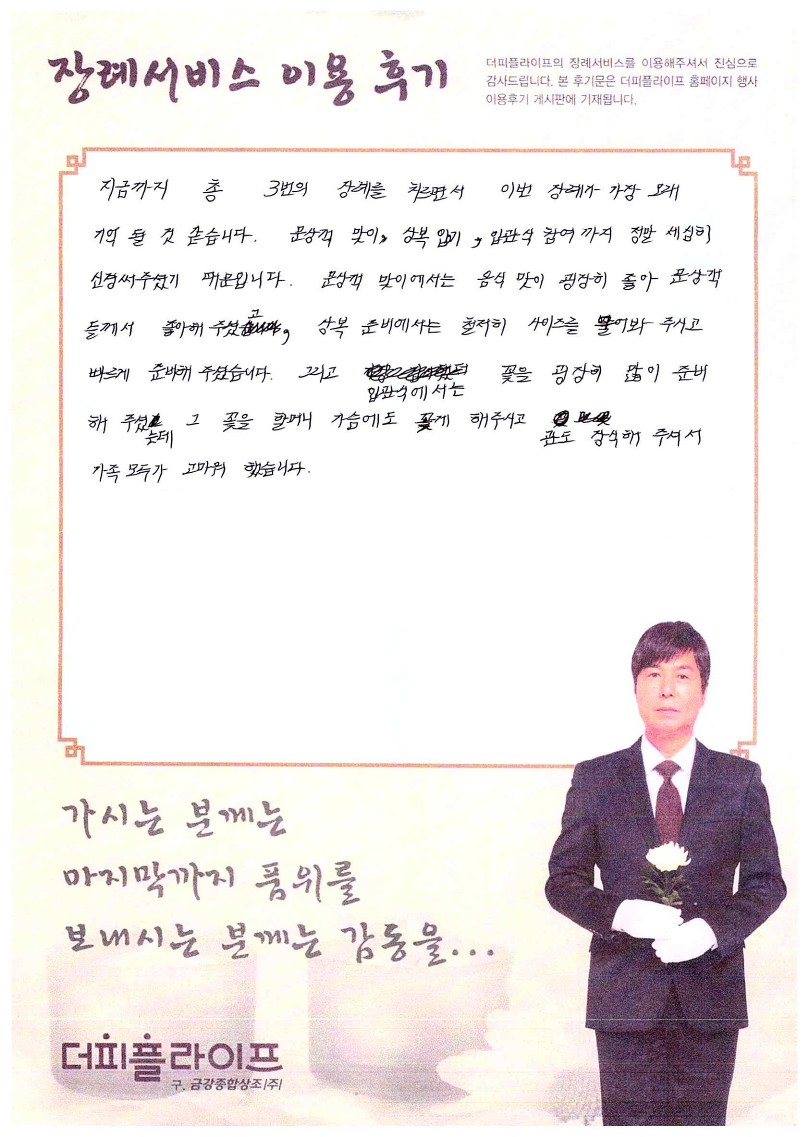 장례서비스 이용 후기
더피플라이프의 장례서비스를 이용해주셔서 진심으로
감사드립니다. 본 후기문은 더피플라이프 홈페이지 행사
이용후기 게시판에 기재됩니다.
지금까지 총 3번의 장례를 치르면서 이번 장례가 가장 오래
기억 될 것 같습니다. 문상객 맞이, 상복 입기, 입관식 참여 까지 정말 세심히
신경써주셨기 때문입니다. 문상객 맞이에서는 음식 맛이 굉장히 좋아 문상객
들께서 좋아해 주셨고, 상복 준비에서는 철저히 사이즈를 물어봐 주시고
빠르게 준비해 주셨습니다. 그리고 입관식에서는 꽃을 굉장히 많이 준비
해 주셨는데 그 꽃을 할머니 가슴에도 꽃게 해주시고 관도 장식해 주셔서
가족 모두가 고마워 했습니다.
가시는 분께는
마지막까지 품위를
보내시는 분께는 감동을...
더피플라이프
구. 금강종합상조(주)